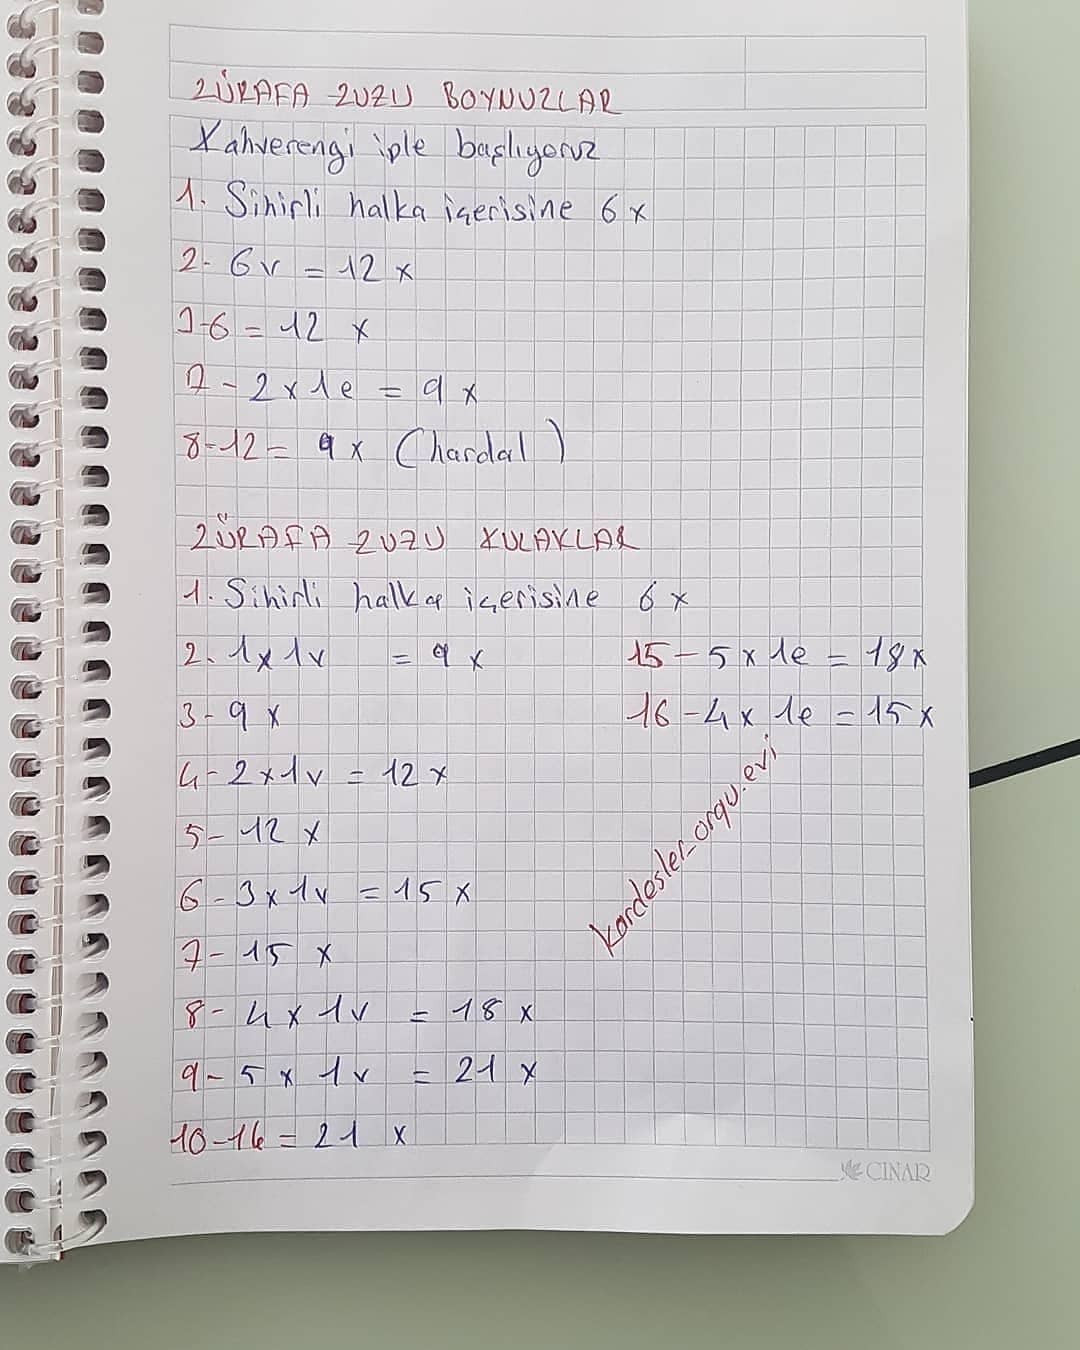 ZÜRAFA ZUZU BOYNUZLAR
Kahverengi iple başlıyoruz
1. Sihirli halka içerisine 6 x
2- 6v = 12 x
3-6 = 12 x
7- 2x1e = 9 x
8-12= 9x (hardal)
ZÜRAFA ZUZU KULAKLAR
1. Sihirli halka içerisine 6 x
2. 1x1v = 9 x
3- 9 x
4- 2x1v = 12 x
5- 12 x
6- 3x1v = 15 x
7- 15 x
8- 4x1v = 18 x
9- 5x1v = 21 x
10-14 = 21 x
15-5x1e = 18x
16-4x1e = 15x
kardesler_orgu.evi
ÇINAR